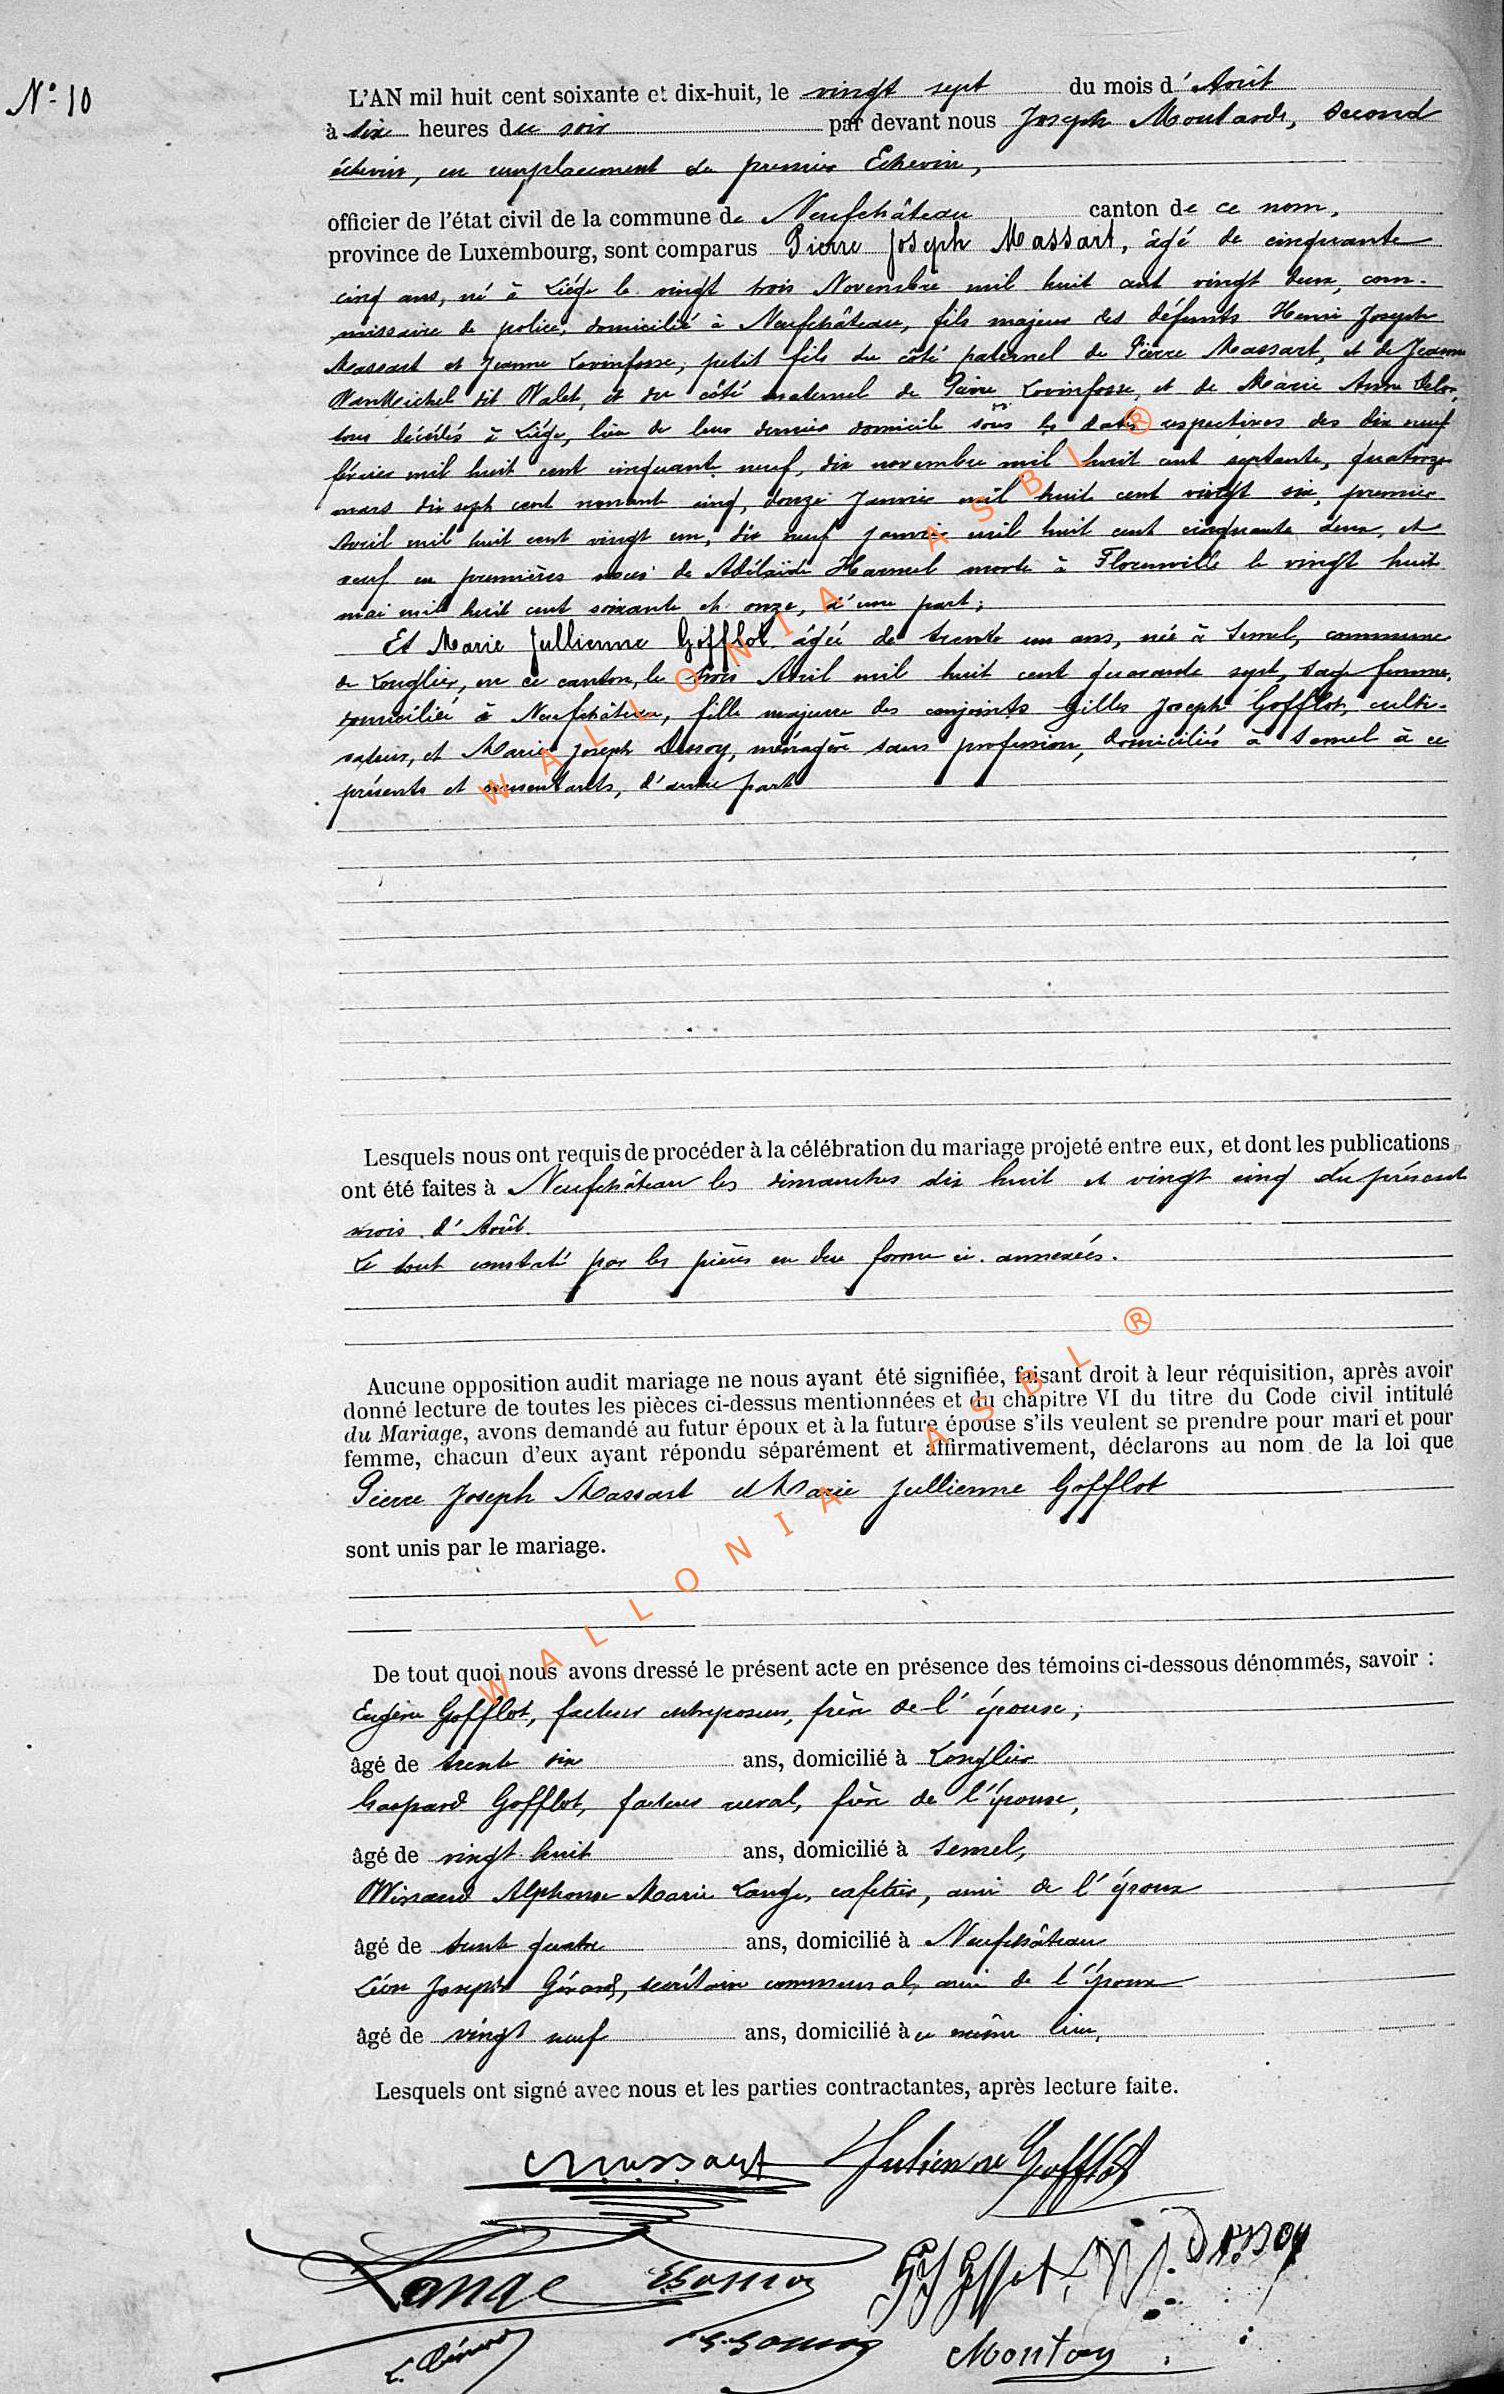 N° 10
L'AN mil huit cent soixante et dix-huit, le vingt sept du mois d'Août
à six heures du soir par devant nous Joseph second
échevin, en remplacement du premier Echevin,
officier de l'état civil de la commune de Neufchâteau canton de ce nom,
province de Luxembourg, sont comparus Pierre Joseph Massart, âgé de cinquante
cinq ans, né à Liége le vingt trois Novembre mil huit cent vingt deux, com-
missaire de police, domicilié à Neufchâteau, fils majeur des défunts Henri Joseph
Massart et Jeanne Lovinfosse, petit fils du côté paternel de Pierre Massart, et de Jeanne
dit Walet, et du côté maternel de Pierre Lovinfosse, et de Marie Anne
tous décédés à Liége, lieu de leur dernier domicile sous les dates respectives des dix neuf
février mil huit cent cinquante neuf, dix novembre mil huit cent septante, quatorze
mars dix sept cent nonante cinq, douze Janvier mil huit cent vingt six, premier
Avril mil huit cent vingt un, dix neuf Janvier mil huit cent cinquante deux, et
veuf en premières noces de Adélaïde Harmel morte à Florenville le vingt huit
mai mil huit cent soixante et onze, d'une part;
Et Marie Jullienne Gofflot âgée de trente un ans, née à Semel, commune
de Longlier, en ce canton, le trois Avril mil huit cent quarante sept, sage femme,
domiciliée à Neufchâteau, fille majeure des conjoints Gilles Joseph Gofflot, culti-
vateur, et Marie Joseph Dessoy, ménagère sans profession, domiciliés à Semel à ce
présents et consentants, d'autre part
Lesquels nous ont requis de procéder à la célébration du mariage projeté entre eux, et dont les publications
ont été faites à Neufchâteau les dimanches dix huit et vingt cinq du présent
mois d'Août.
Le tout constaté par les pièces en due forme ci-annexées.
Aucune opposition audit mariage ne nous ayant été signifiée, faisant droit à leur réquisition, après avoir
donné lecture de toutes les pièces ci-dessus mentionnées et du chapitre VI du titre du Code civil intitulé
du Mariage, avons demandé au futur époux et à la future épouse s'ils veulent se prendre pour mari et pour
femme, chacun d'eux ayant répondu séparément et affirmativement, déclarons au nom de la loi que
Pierre Joseph Massart et Marie Jullienne Gofflot
sont unis par le mariage.
De tout quoi nous avons dressé le présent acte en présence des témoins ci-dessous dénommés, savoir :
Eugène Gofflot, facteur entreposeur, frère de l'épouse;
âgé de trente six ans, domicilié à Longlier
Gaspard Gofflot, facteur rural, frère de l'épouse,
âgé de vingt huit ans, domicilié à Semel,
Winand Alphonse Marie Lange, cafetier, ami de l'époux
âgé de trente quatre ans, domicilié à Neufchâteau
Léon Joseph Gérard, secrétaire communal, ami de l'époux
âgé de vingt neuf ans, domicilié à ce même lieu,
Lesquels ont signé avec nous et les parties contractantes, après lecture faite.
Massart Julienne Gofflot
Lange Dessoy
L. Gérard
WALLONIA ASBL ®
WALLONIA ASBL ®